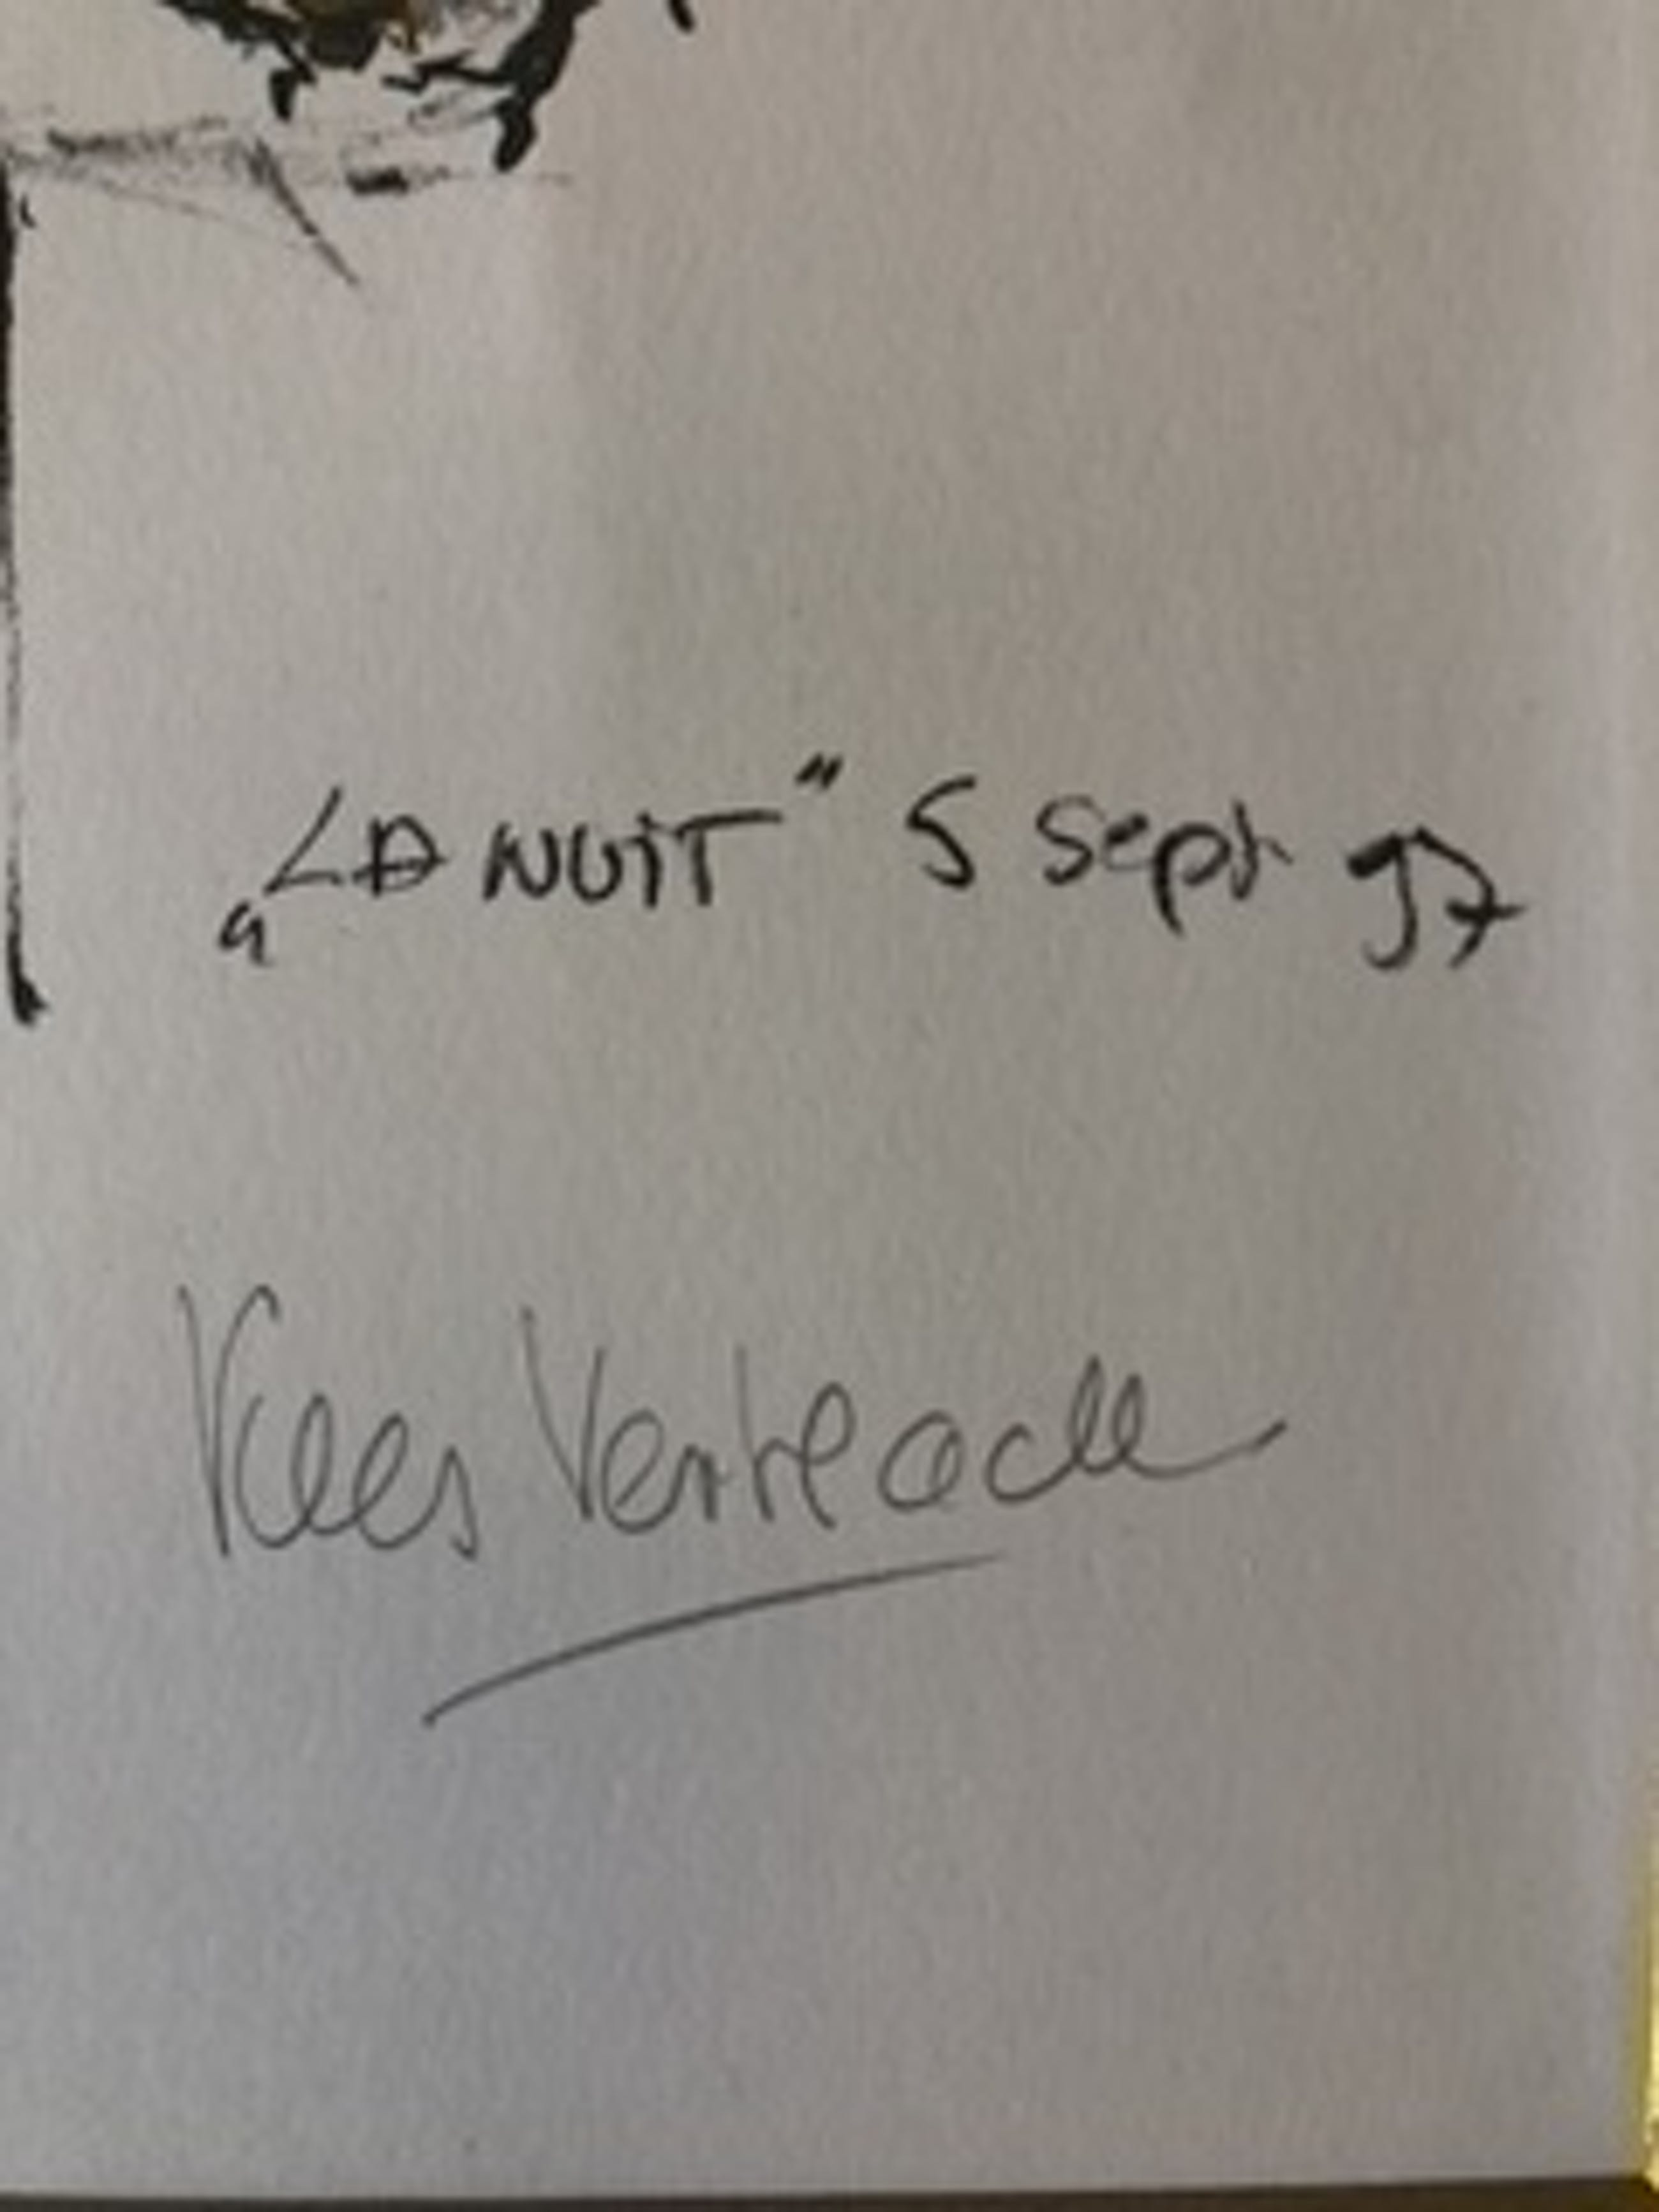 „LA NUIT" 5 Sept 97
Kees Verkade